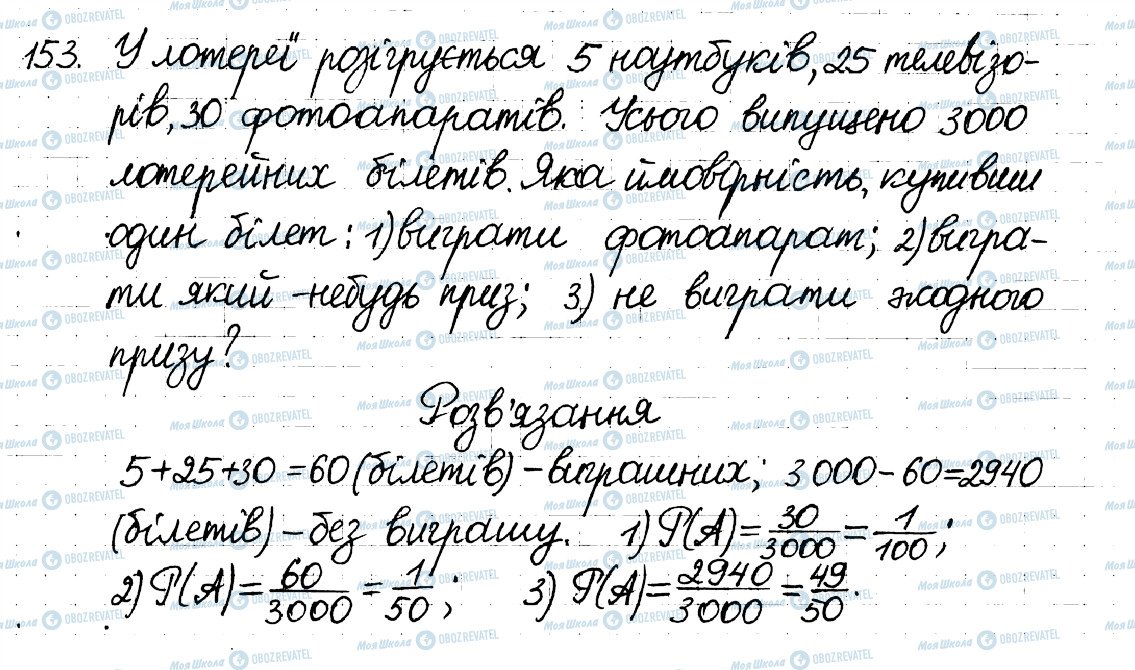 153. У лотереї розігрується 5 ноутбуків, 25 телевізо-
рів, 30 фотоапаратів. Усього випущено 3000
лотерейних білетів. Яка ймовірність, купивши
один білет: 1) виграти фотоапарат; 2) вигра-
ти який-небудь приз; 3) не виграти жодного
призу?
Розв'язання
5+25+30=60 (білетів) – виграшних; 3000-60=2940
(білетів) – без виграшу. 1) P(A)=30/3000=1/100;
2) P(A)=60/3000=1/50; 3) P(A)=2940/3000=49/50.
МояШкола OBOZREVATEL